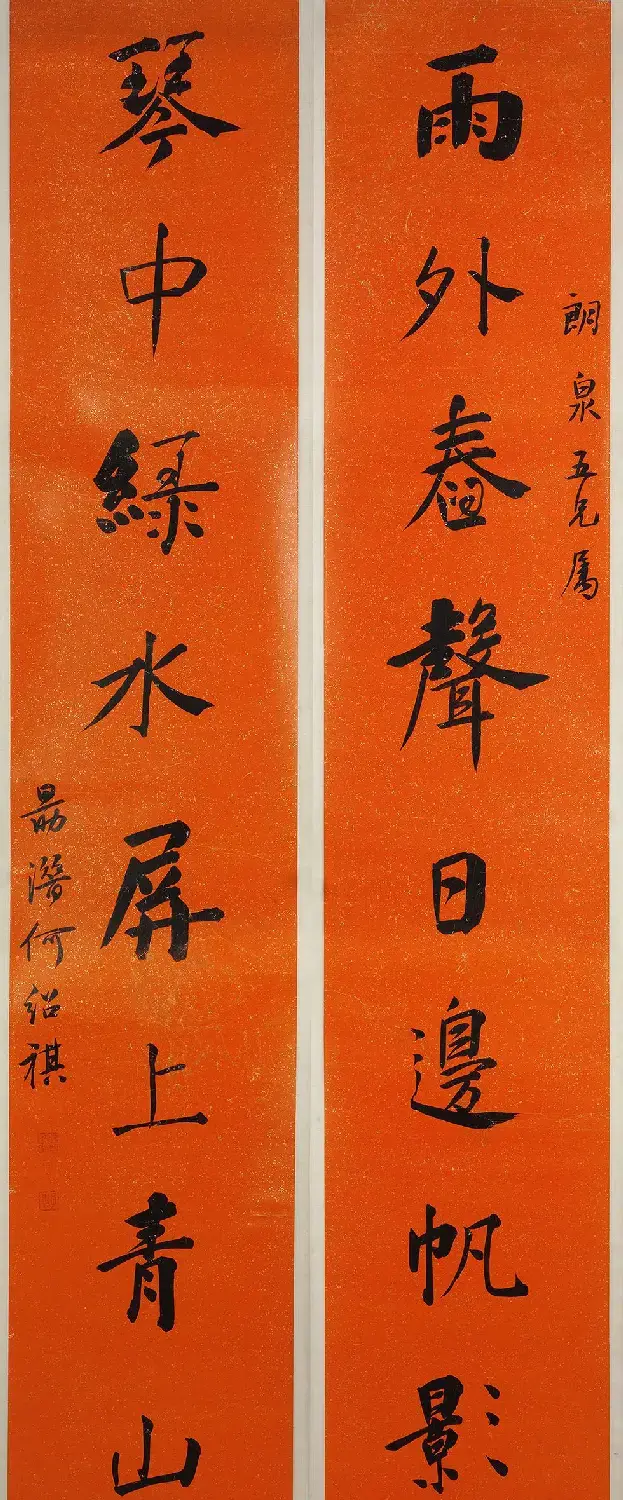 朗泉五兄属
雨外舂聲日邊帆影
琴中綠水屏上青山
勗潛何紹祺